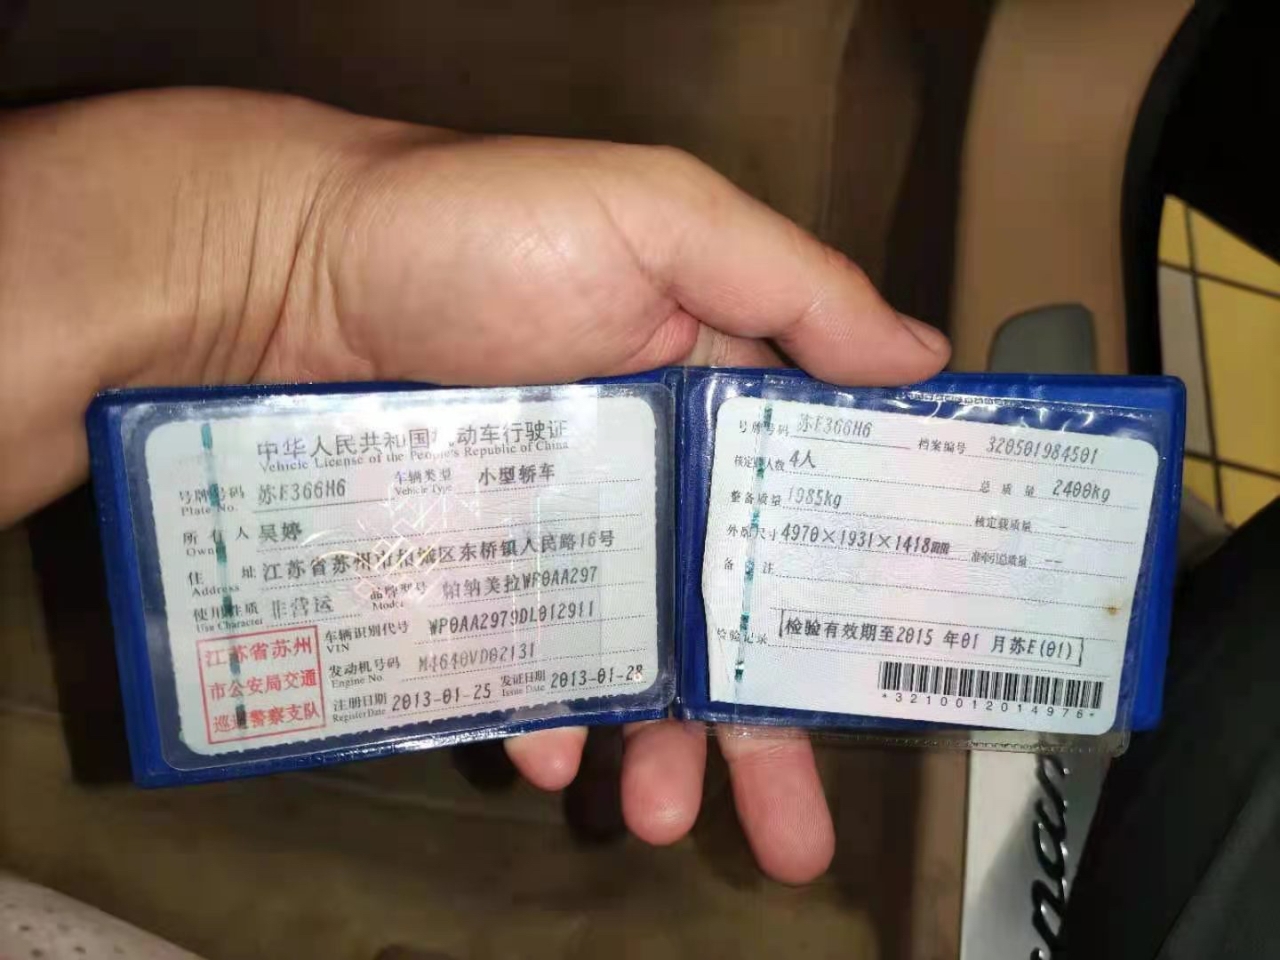 中华人民共和国机动车行驶证
Vehicle License of the People's Republic of China
号牌号码 苏E366H6 车辆类型 小型轿车
Plate No. Vehicle Type
所有人 吴婷
Owner
住址 江苏省苏州市相城区东桥镇人民路16号
Address
使用性质 非营运 品牌型号 帕纳美拉WP0AA297
Use Character Model
车辆识别代号 WP0AA2979DL012911
VIN
发动机号码 M4640VD02131
Engine No.
注册日期 2013-01-25 发证日期 2013-01-28
Register Date Issue Date
江苏省苏州
市公安局交通
巡逻警察支队
号牌号码 苏E366H6 档案编号 320501984501
核定载人数 4人 总质量 2400kg
整备质量 1985kg 核定载质量 --
外廓尺寸 4970×1931×1418mm 准牵引总质量 --
备注
检验记录 检验有效期至2015年01月苏E(01)
*3210012014976*